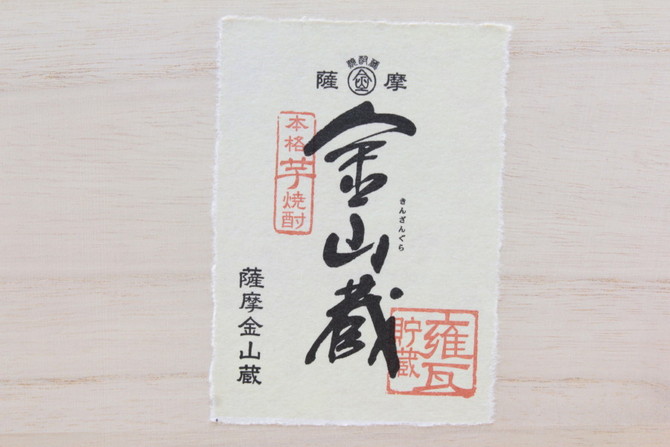 薩摩
本格芋焼酎
金山蔵
きんざんぐら
薩摩金山蔵
貯蔵